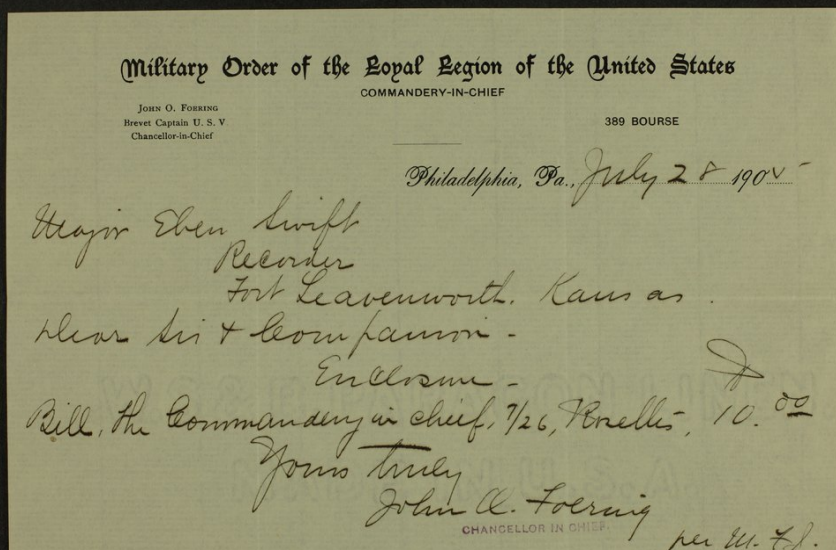 Military Order of the Loyal Legion of the United States
COMMANDERY-IN-CHIEF
JOHN O. FOERING
Brevet Captain U. S. V
Chancellor-in-Chief
389 BOURSE
Philadelphia, Pa., July 28 1905
Major Eben Swift
Recorder
Fort Leavenworth. Kansas.
Dear Sir & Companion -
Enclosure -
Bill, the Commandery in chief, 7/26, Rosettes, 10.00
Yours truly
John O. Foering
CHANCELLOR IN CHIEF.
per M.